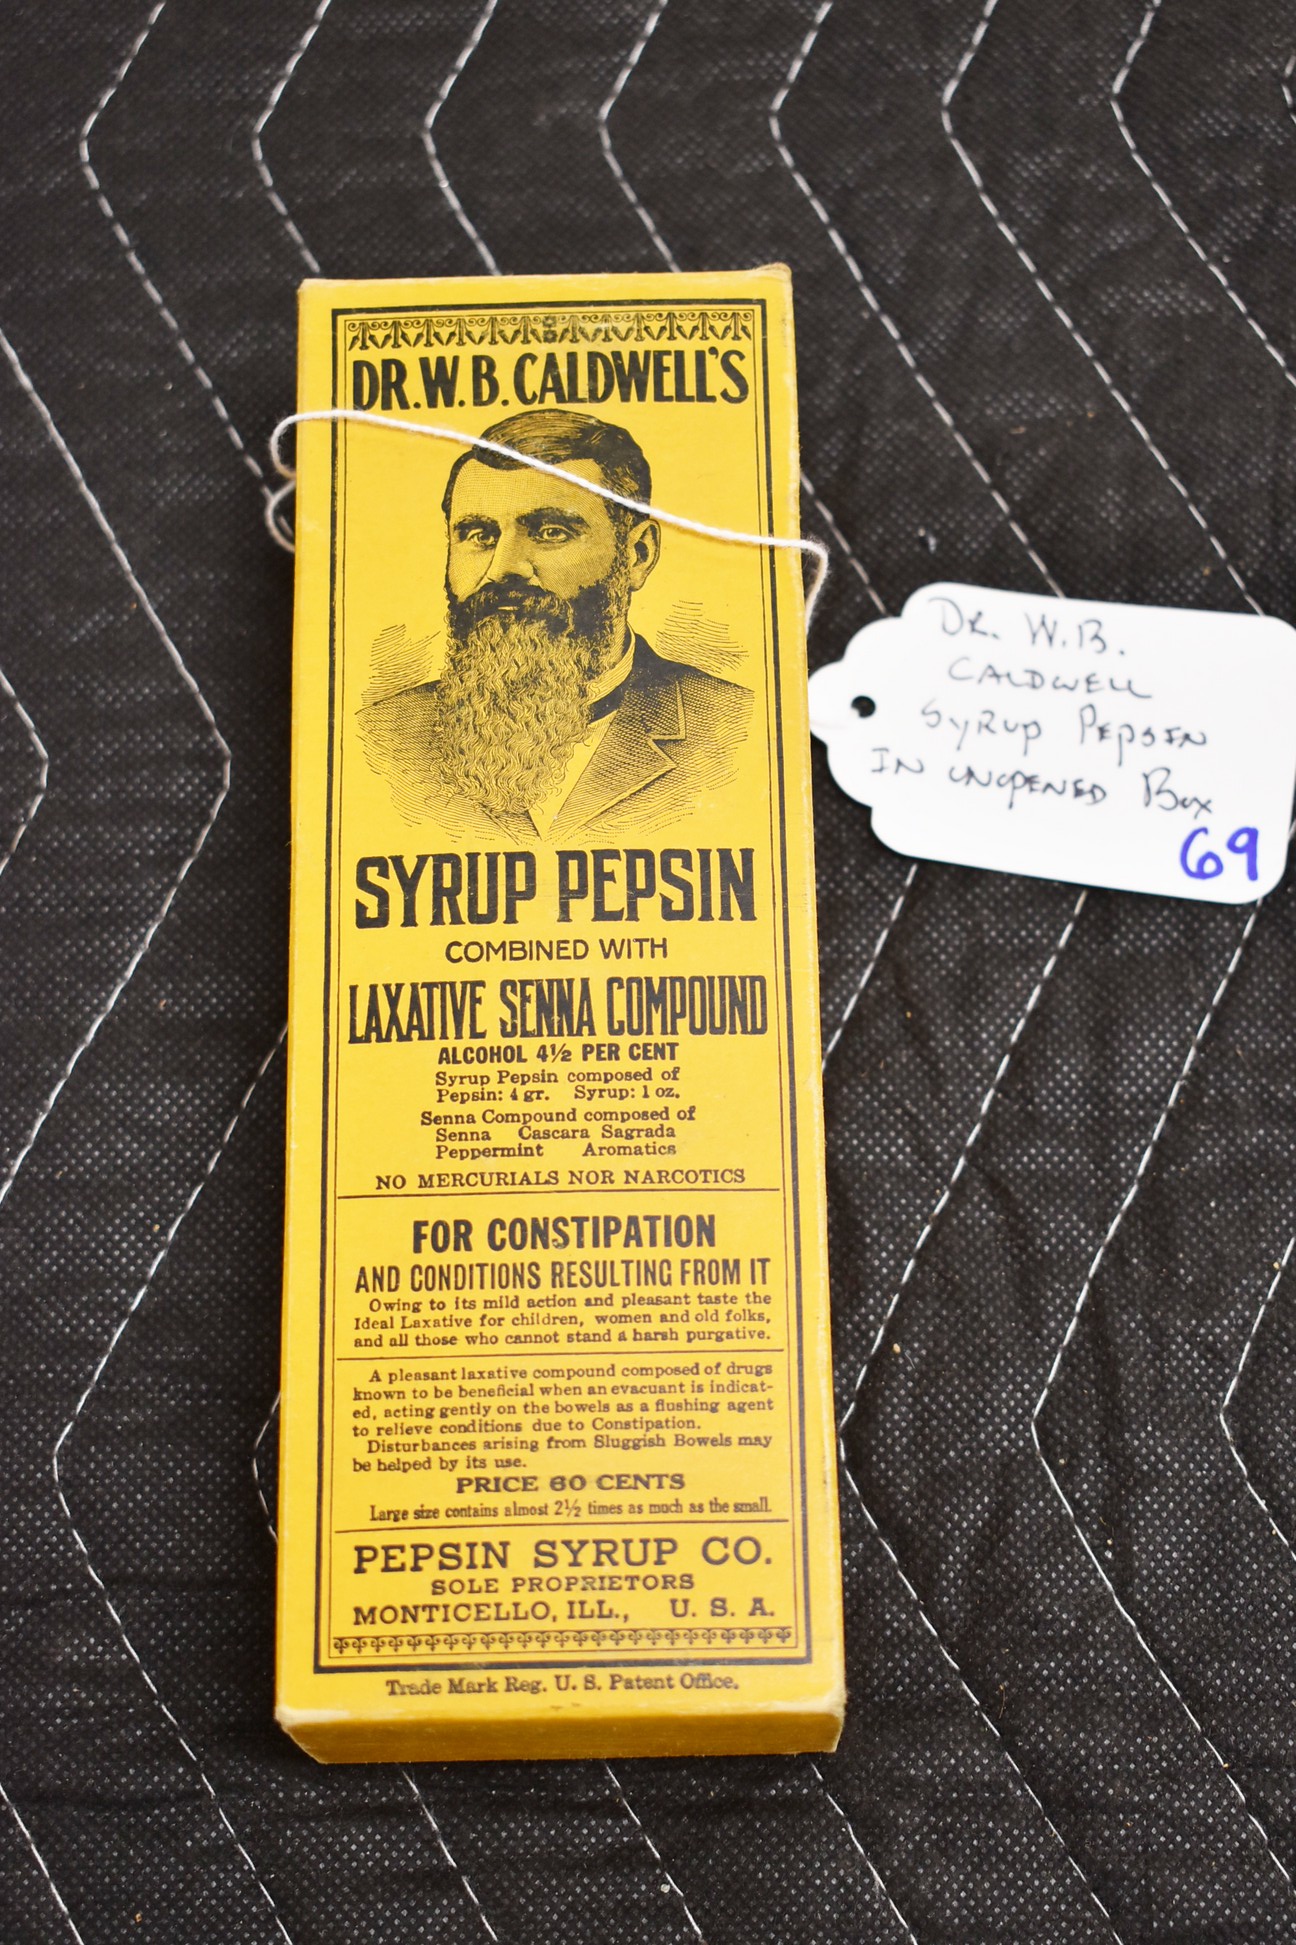 DR. W. B. CALDWELL'S
SYRUP PEPSIN
COMBINED WITH
LAXATIVE SENNA COMPOUND
ALCOHOL 4½ PER CENT
Syrup Pepsin composed of
Pepsin: 4 gr. Syrup: 1 oz.
Senna Compound composed of
Senna Cascara Sagrada
Peppermint Aromatics
NO MERCURIALS NOR NARCOTICS
FOR CONSTIPATION
AND CONDITIONS RESULTING FROM IT
Owing to its mild action and pleasant taste the
Ideal Laxative for children, women and old folks,
and all those who cannot stand a harsh purgative.
A pleasant laxative compound composed of drugs
known to be beneficial when an evacuant is indicat-
ed, acting gently on the bowels as a flushing agent
to relieve conditions due to Constipation.
Disturbances arising from Sluggish Bowels may
be helped by its use.
PRICE 60 CENTS
Large size contains almost 2½ times as much as the small.
PEPSIN SYRUP CO.
SOLE PROPRIETORS
MONTICELLO, ILL., U. S. A.
Trade Mark Reg. U. S. Patent Office.
DR. W.B.
CALDWELL
SYRUP PEPSIN
IN UNOPENED BOX
69